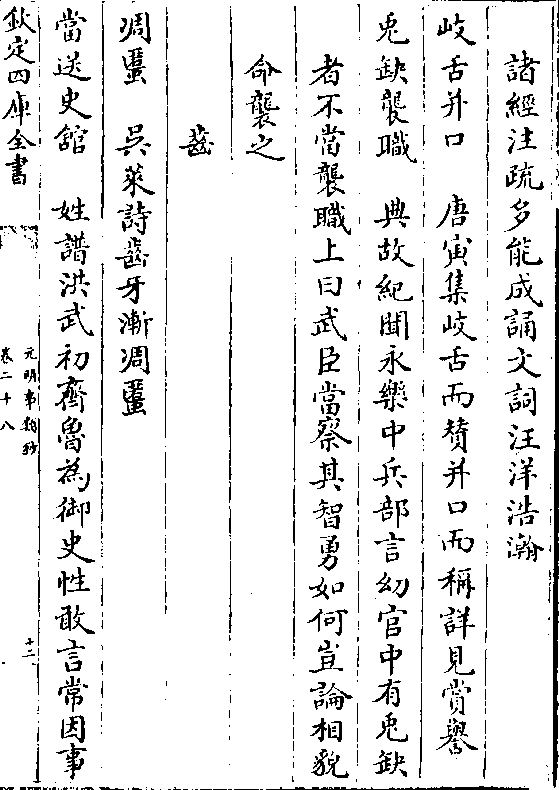 諸經注疏多能成誦文詞汪洋浩瀚
岐舌并口　唐寅集岐舌而贊并口而稱詳見賞譽
兎缺襲職　典故紀聞永樂中兵部言幼官中有兎缺
者不當襲職上曰武臣當察其智勇如何豈論相貌
命襲之
齒
凋蠹　吳萊詩齒牙漸凋蠹
當送史舘　姓譜洪武初齊魯為御史性敢言常因事
欽定四庫全書
元明事類鈔
卷二十八
十二